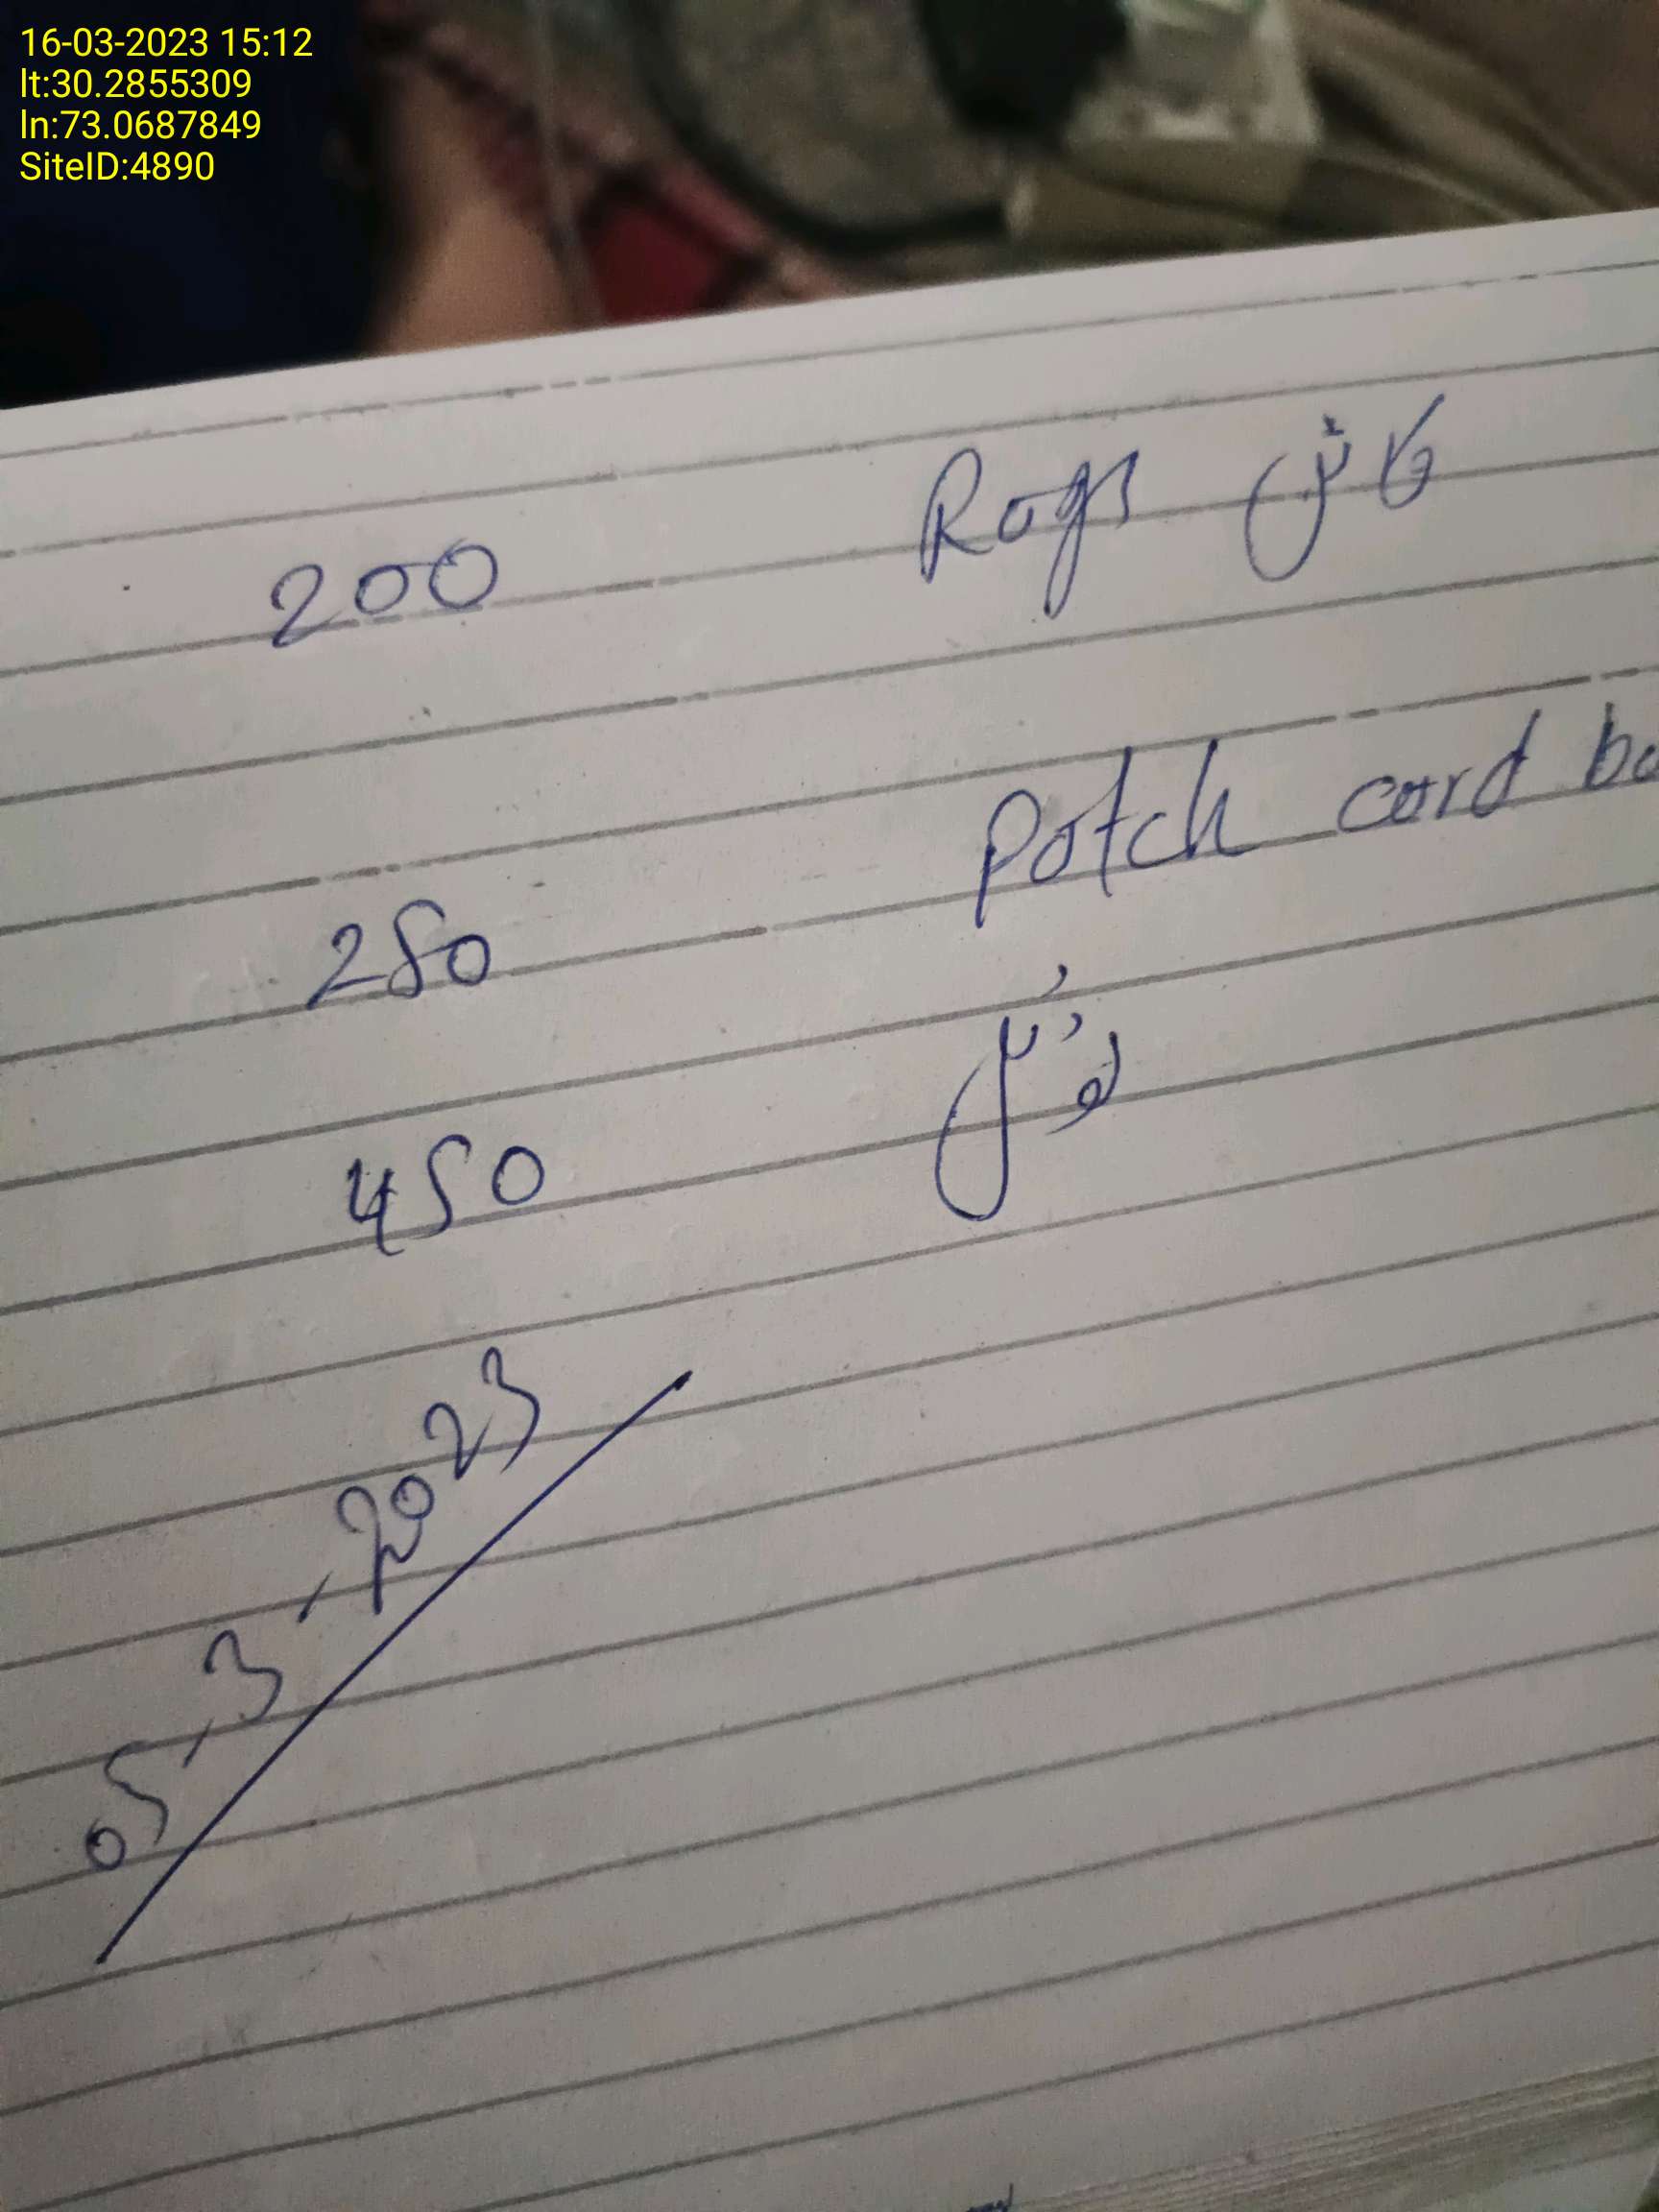 16-03-2023 15:12
lt:30.2855309
ln:73.0687849
SiteID:4890
200 Rags
250 Patch cord
450 ٹوٹل
05,3,2023